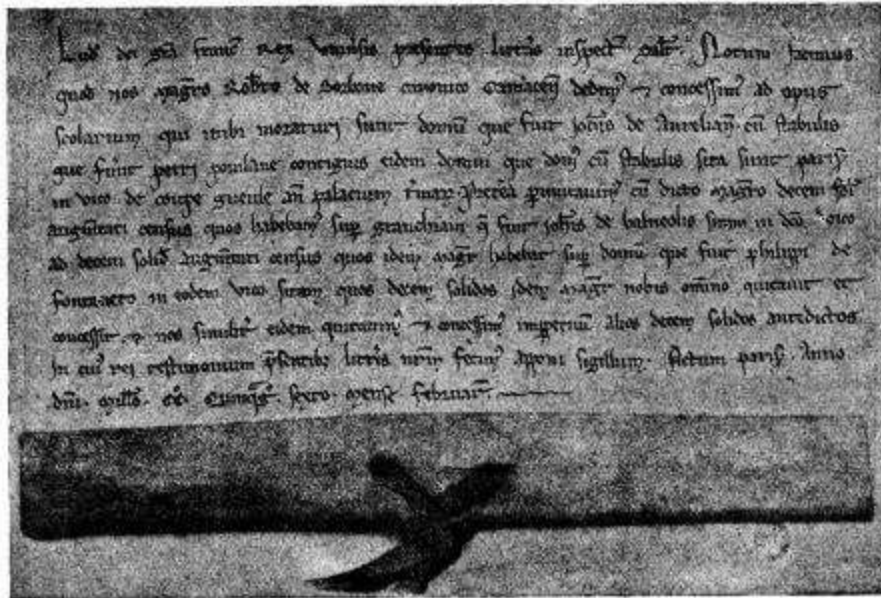 Lud. dei gra franc Rex Universis presentes litteras inspectur salt. Notum facimus
quod nos magro Robto de Sorbone canonico Cameraceñ dedim9 et concessim9 ad opus
scolarium qui inibi moraturi sunt domū que fuit johis de Aurelian cū stabulis
que fuert petri poinlane contiguis eidem domui que dom9 cū stabulis sita sunt paris
in vico de coupe gueule añ palacium cū dicto magro decem sol
augmtati census quos habebam9 sup granchiam q fuit johis de balneolis sitam in dco vico
ad decem solid augmtati census quos idem magr habebat sup domū que fuit philippi de
fontaneto in eodem vico sitam quos decem solidos idem magr nobis omīno quitavit et
concessit et nos similit eidem quitavim9 et concessim9 imperpetuū alios decem solidos antedictos
In cui9 rei testimonium psentibz littis nrm fecim9 apponi sigillum. Actum paris. Anno
dni. millo. cco. quinqgo. sexto. mense februar